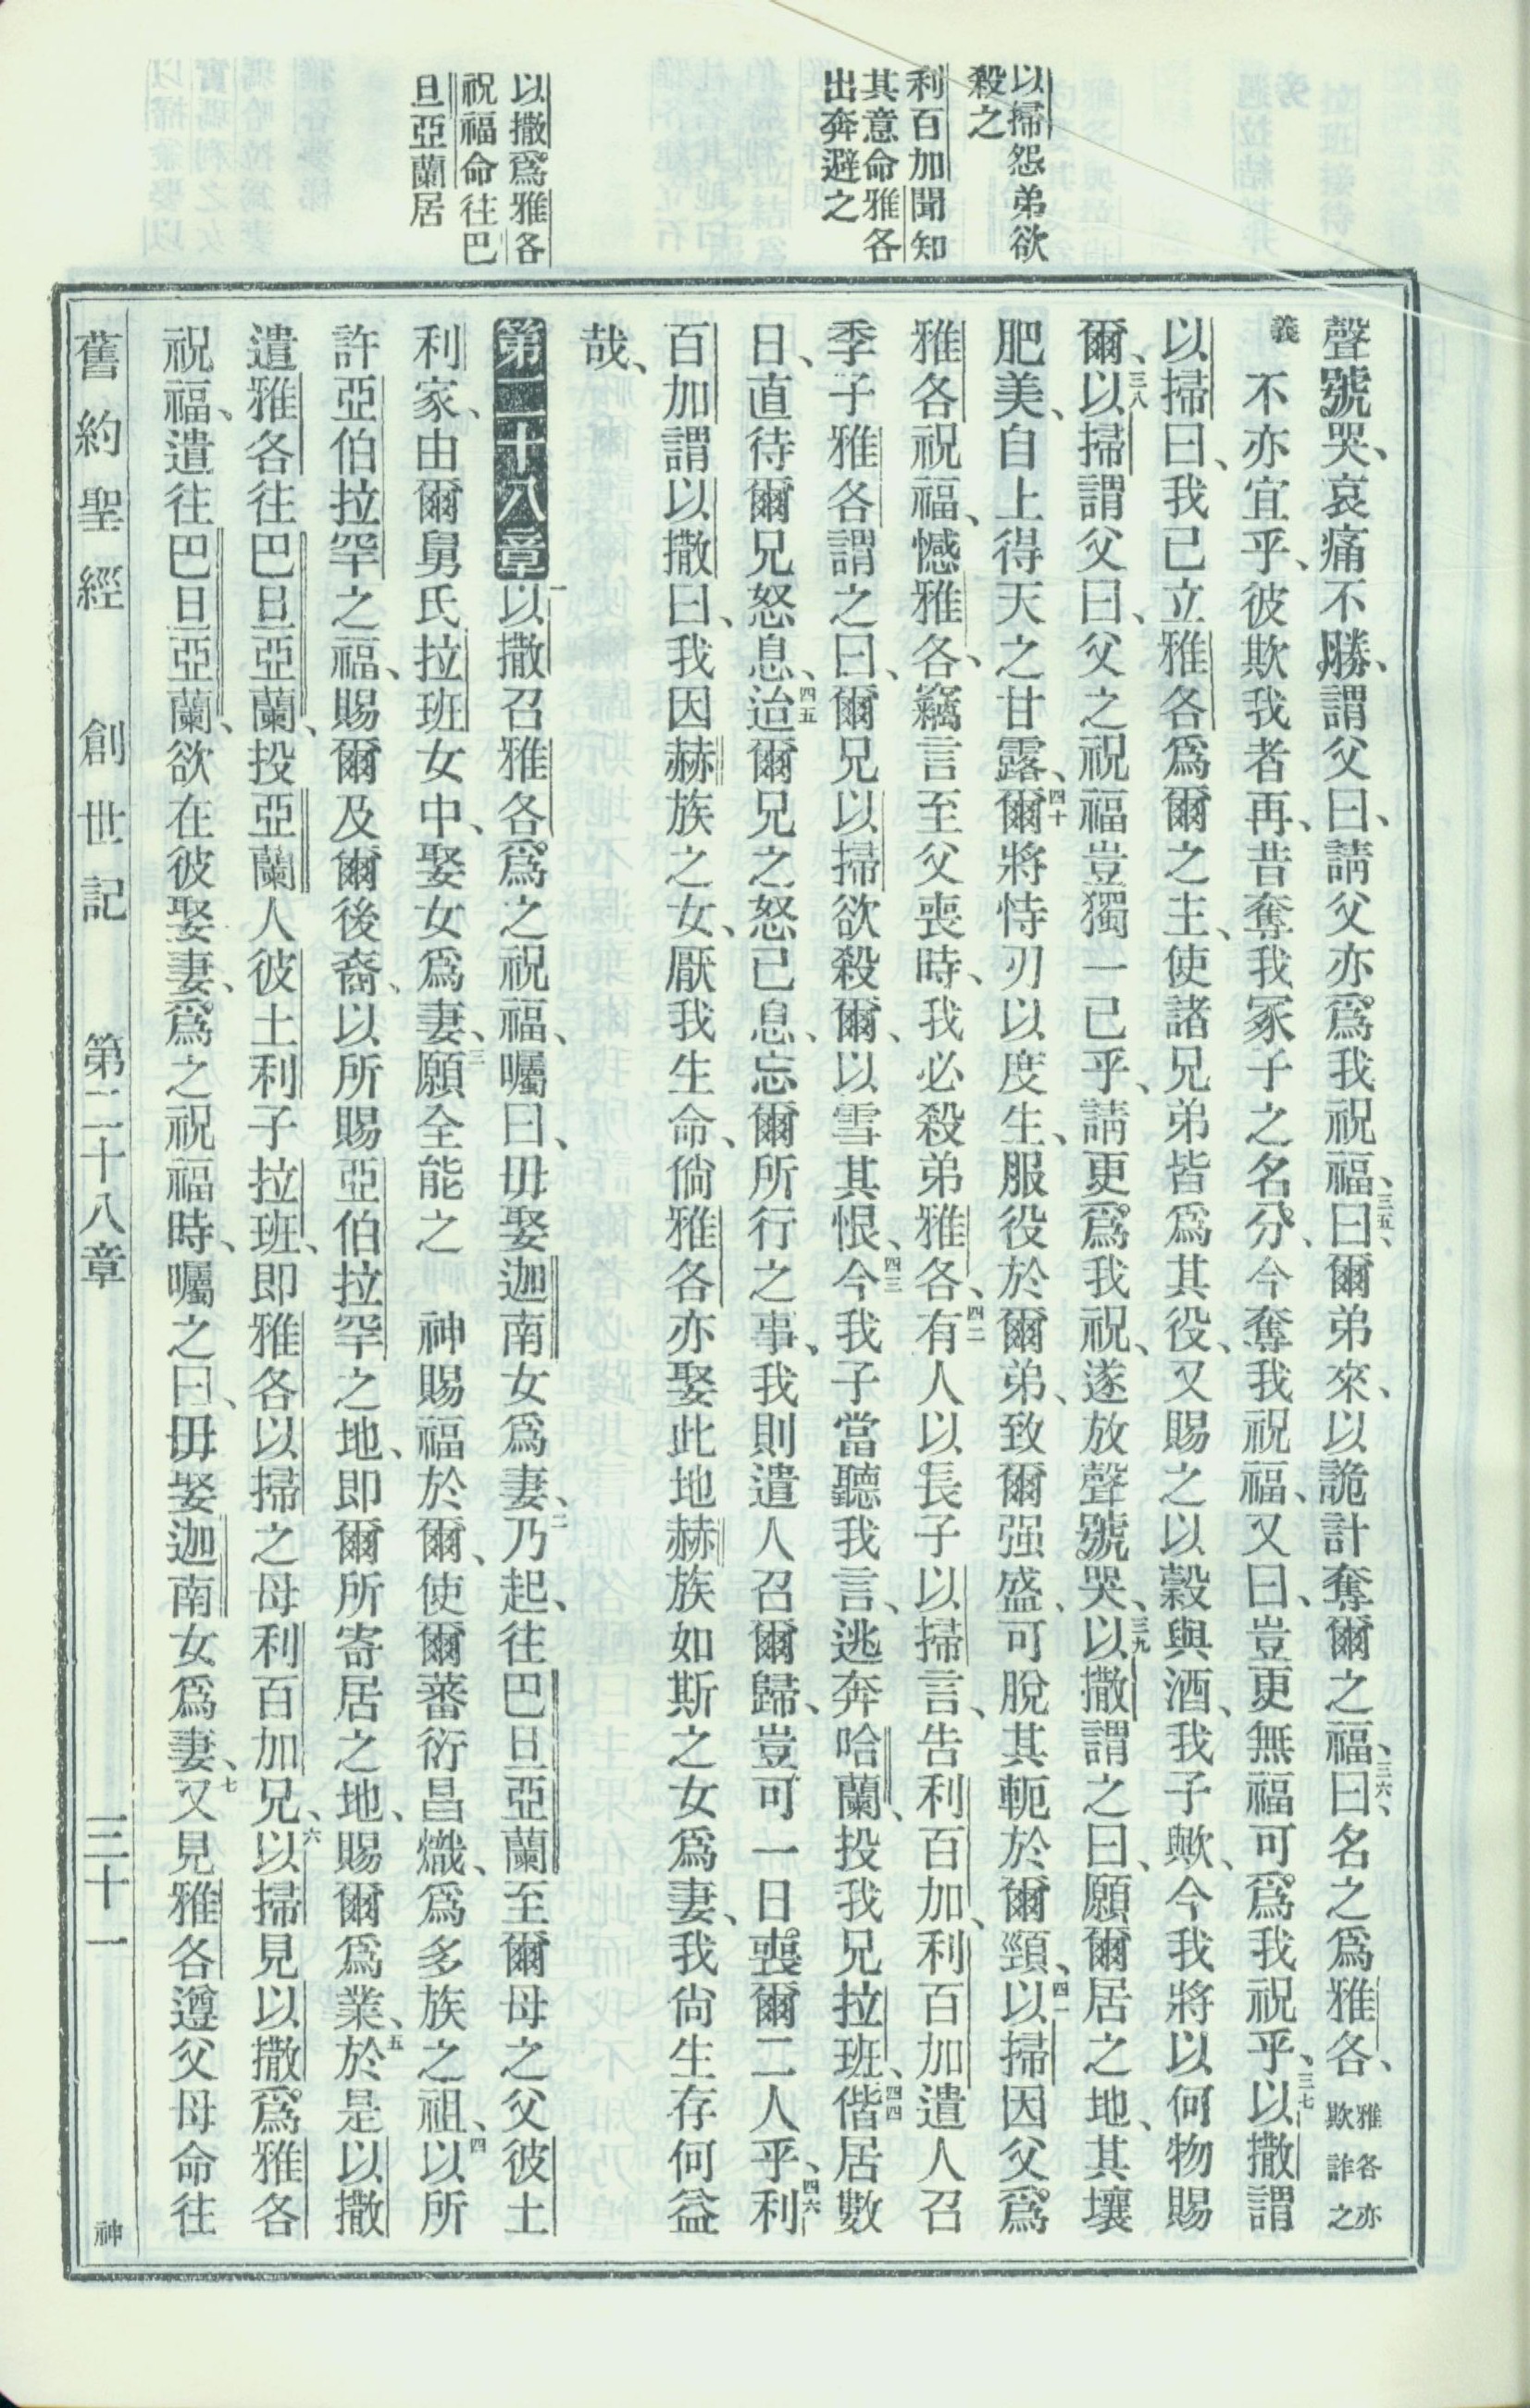 以掃怨弟欲
殺之
利百加聞知
其意命雅各
出奔避之
以撒爲雅各
祝福命往巴
旦亞蘭居
聲號哭、哀痛不勝、謂父曰、請父亦爲我祝福、三五曰、爾弟來、以詭計奪爾之福、三六曰、名之爲雅各、雅各亦欺詐之
義不亦宜乎、彼欺我者再、昔奪我冢子之名分、今奪我祝福、又曰、豈更無福可爲我祝乎、三七以撒謂
以掃曰、我已立雅各爲爾之主、使諸兄弟皆爲其役、又賜之以穀與酒、我子歟、今我將以何物賜
爾、三八以掃謂父曰、父之祝福豈獨一已乎、請更爲我祝、遂放聲號哭、三九以撒謂之曰、願爾居之地、其壤
肥美、自上得天之甘露、四十爾將恃刃以度生、服役於爾弟、致爾强盛、可脫其軛於爾頸、四一以掃因父爲
雅各祝福、憾雅各、竊言至父喪時、我必殺弟雅各、四二有人以長子以掃言、告利百加、利百加遣人召
季子雅各謂之曰、爾兄以掃欲殺爾、以雪其恨、四三今我子當聽我言、逃奔哈蘭、投我兄拉班、四四偕居數
日、直待爾兄怒息、四五迨爾兄之怒已息、忘爾所行之事、我則遣人召爾歸、豈可一日喪爾二人乎、四六利
百加謂以撒曰、我因赫族之女、厭我生命、倘雅各亦娶此地赫族如斯之女爲妻、我尙生存何益
哉、
第二十八章 一以撒召雅各爲之祝福、囑曰、毋娶迦南女爲妻、二乃起、往巴旦亞蘭至爾母之父彼土
利家、由爾舅氏拉班女中、娶女爲妻、三願全能之 神賜福於爾、使爾蕃衍昌熾、爲多族之祖、四以所
許亞伯拉罕之福、賜爾及爾後裔、以所賜亞伯拉罕之地、卽爾所寄居之地、賜爾爲業、五於是以撒
遣雅各往巴旦亞蘭、投亞蘭人彼土利子拉班、卽雅各以掃之母利百加兄、六以掃見以撒爲雅各
祝福、遣往巴旦亞蘭、欲在彼娶妻、爲之祝福時、囑之曰、毋娶迦南女爲妻、七又見雅各遵父母命往
舊約聖經 創世記 第二十八章 三十一 神